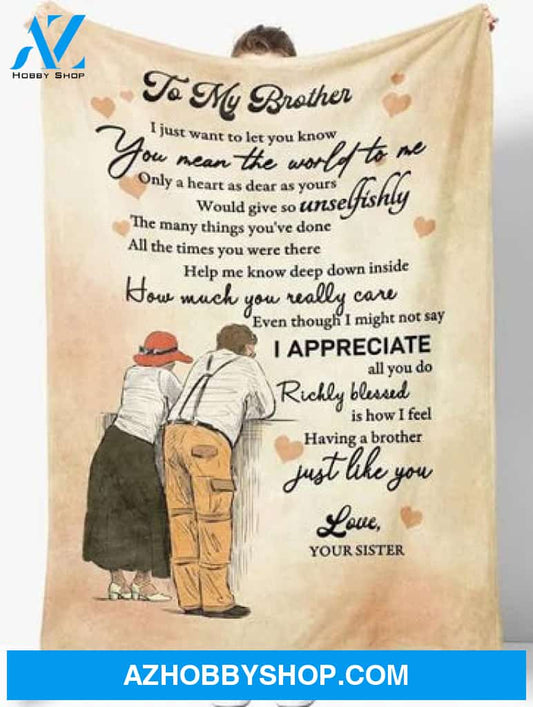 AZ
HOBBY SHOP
To My Brother
I just want to let you know
You mean the world to me
Only a heart as dear as yours
Would give so unselfishly
The many things you've done
All the times you were there
Help me know deep down inside
How much you really care
Even though I might not say
I APPRECIATE
all you do
Richly blessed
is how I feel
Having a brother
just like you
Love,
YOUR SISTER
AZHOBBYSHOP.COM